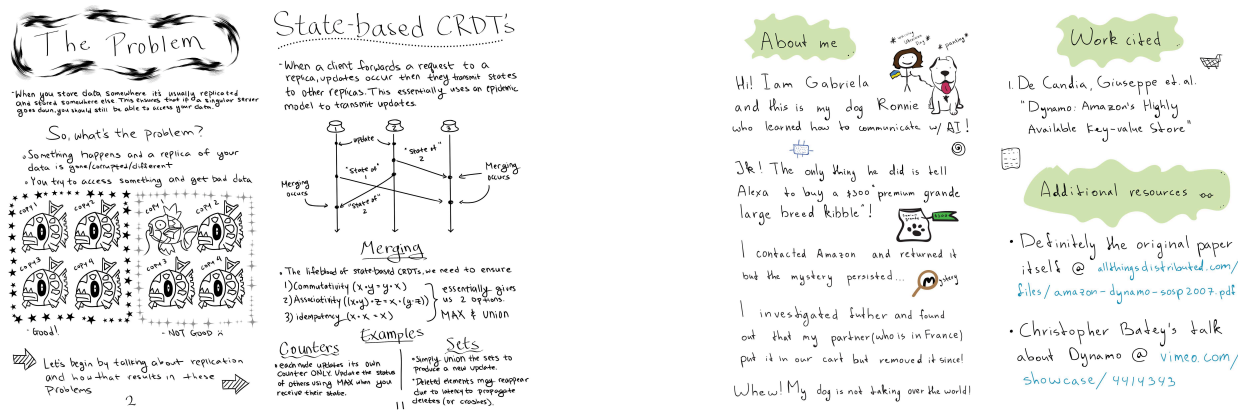 The Problem
-When you store data somewhere it's usually replicated
and stored somewhere else. This ensures that if a singular server
goes down, you should still be able to access your data.
So, what's the problem?
• Something happens and a replica of your
data is gone/corrupted/different
• You try to access something and get bad data
copy 1
copy 2
copy 3
copy 4
copy 1
copy 2
copy 3
copy 4
- Good!
- NOT GOOD :(
Let's begin by talking about replication
and how that results in these
Problems
2
State-based CRDT's
-When a client forwards a request to a
replica, updates occur then they transmit states
to other replicas. This essentially uses an epidemic
model to transmit updates.
1
2
3
update
"State of"
2
"State of"
1
"State of"
2
Merging
occurs
Merging
occurs
Merging
• The lifeblood of state-based CRDTs, we need to ensure
1) Commutativity (x•y = y•x)
2) Associativity ((x•y)•z = x•(y•z))
3) idempotency (x•x = x)
essentially gives
us 2 options.
MAX & UNION
Examples
Counters
• each node updates its own
counter ONLY. Update the status
of others using MAX when you
receive their state.
Sets
• Simply union the sets to
produce a new update.
• Deleted elements may reappear
due to latency to propagate
deletes (or crashes).
11
About me
* waving Ukrainian flag *
* panting *
Hi! I am Gabriela
and this is my dog Ronnie
who learned how to communicate w/ AI!
Jk! The only thing he did is tell
Alexa to buy a $300 "premium grande
large breed Kibble"!
I contacted Amazon and returned it
but the mystery persisted...
Mystery
I investigated futher and found
out that my partner (who is in France)
put it in our cart but removed it since!
Whew! My dog is not taking over the world!
Work cited
1. De Candia, Giuseppe et. al.
"Dynamo: Amazon's Highly
Available Key-value Store"
Additional resources
• Definitely the original paper
itself @ allthingsdistributed.com/
files/amazon-dynamo-sosp2007.pdf
• Christopher Batey's talk
about Dynamo @ vimeo.com/
showcase/4414343